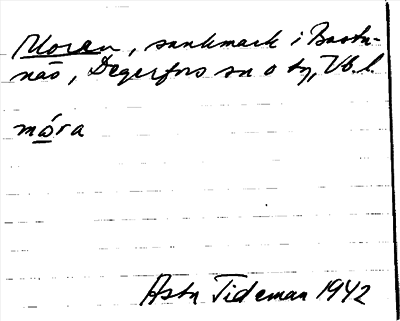 Moran, sankmark i Bastu-
näs, Degerfors sn o by, Vb. l.
móra
Astr Tideman 1942